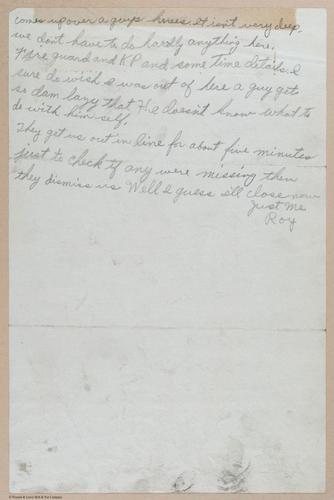 comes up over a guys knees. It isnt very deep.
we dont have to do hardly anything here.
Fire guard and KP and some time details. I
sure do wish I was out of here a guy gets
so dam lazy that He doesn't know what to
do with him self.
They get us out in line for about five minutes
just to check if any were missing then
they dismiss us Well I guess Ill close now
Just Me
Roy